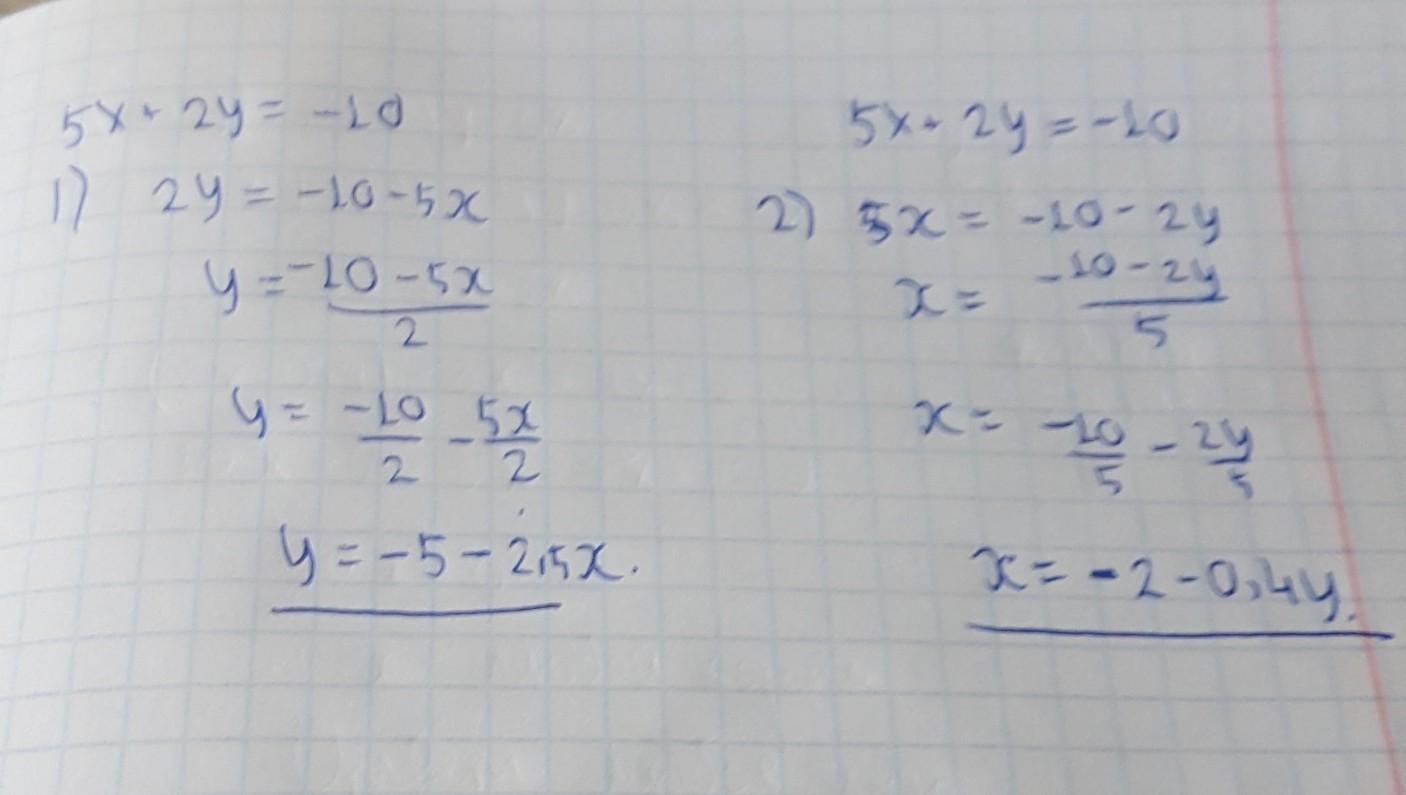 5x + 2y = -10
1) 2y = -10 - 5x
y = -10 - 5x
2
y = -10/2 - 5x/2
y = -5 - 2,5x.
5x + 2y = -10
2) 5x = -10 - 2y
x = -10 - 2y
5
x = -10/5 - 2y/5
x = -2 - 0,4y.